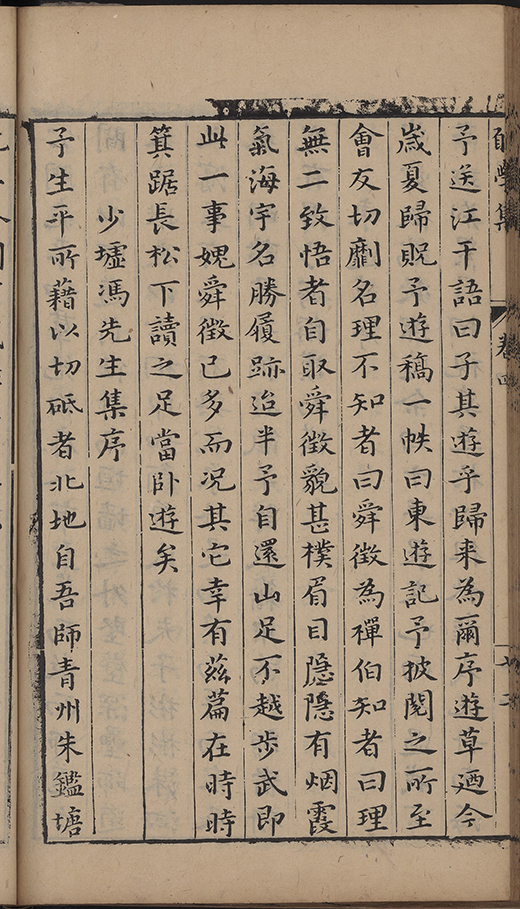 學集 卷四
予送江干語曰子其遊乎歸来為爾序遊草廼今
歲夏歸貺予遊稿一帙曰東遊記予披閱之所至
會友切劘名理不知者曰舜徵為禪伯知者曰理
無二致悟者自取舜徵貌甚樸眉目隱隱有烟霞
氣海宇名勝履跡迨半予自還山足不越步武即
此一事媿舜徵已多而况其它幸有兹篇在時時
箕踞長松下讀之足當卧遊矣
少墟馮先生集序
予生平所藉以切砥者北地自吾師青州朱鑑塘